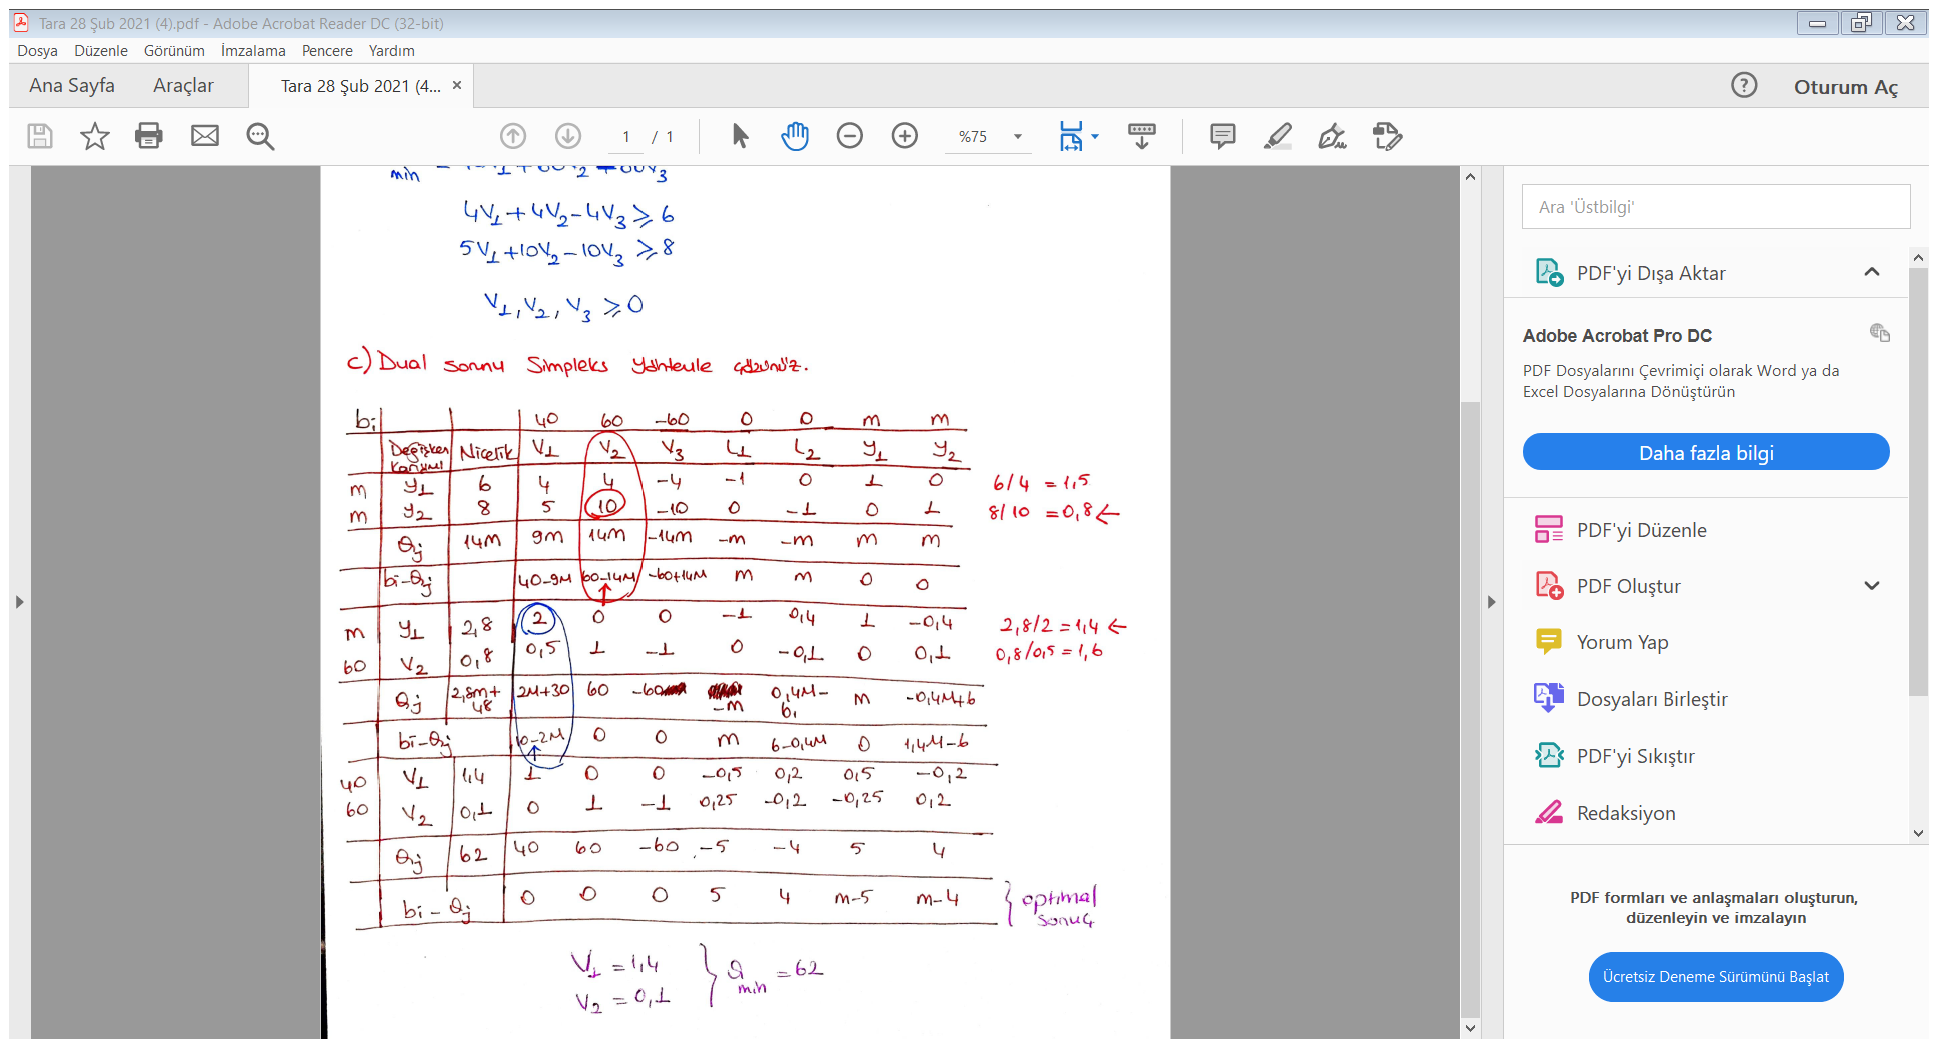 Tara 28 Şub 2021 (4).pdf - Adobe Acrobat Reader DC (32-bit)
Dosya Düzenle Görünüm İmzalama Pencere Yardım
Ana Sayfa Araçlar Tara 28 Şub 2021 (4... × ? Oturum Aç
1 / 1 %75
min
4V1+4V2-4V3 ≥ 6
5V1+10V2-10V3 ≥ 8
V1, V2, V3 ≥ 0
c) Dual sorunu Simpleks yöntemle çözünüz.
bi 40 60 -60 0 0 m m
Değişken Karışımı Nicelik V1 V2 V3 L1 L2 y1 y2
m y1 6 4 4 -4 -1 0 1 0 6/4 = 1,5
m y2 8 5 10 -10 0 -1 0 1 8/10 = 0,8 ←
Qj 14M 9M 14M -14M -m -m m m
bi-Qj 40-9M 60-14M -60+14M m m 0 0
m y1 2,8 2 0 0 -1 0,4 1 -0,4 2,8/2 = 1,4 ←
60 V2 0,8 0,5 1 -1 0 -0,1 0 0,1 0,8/0,5 = 1,6
Qj 2,8m+48 2M+30 60 -60 -m 0,4M-6 m -0,4M+6
bi-Qj 10-2M 0 0 m 6-0,4M 0 1,4M-6
40 V1 1,4 1 0 0 -0,5 0,2 0,5 -0,2
60 V2 0,1 0 1 -1 0,25 -0,2 -0,25 0,2
Qj 62 40 60 -60 -5 -4 5 4
bi - Qj 0 0 0 5 4 m-5 m-4 } optimal sonuç
V1 = 1,4
V2 = 0,1 } Q min = 62
Ara 'Üstbilgi'
PDF'yi Dışa Aktar
Adobe Acrobat Pro DC
PDF Dosyalarını Çevrimiçi olarak Word ya da
Excel Dosyalarına Dönüştürün
Daha fazla bilgi
PDF'yi Düzenle
PDF Oluştur
Yorum Yap
Dosyaları Birleştir
PDF'yi Sıkıştır
Redaksiyon
PDF formları ve anlaşmaları oluşturun,
düzenleyin ve imzalayın
Ücretsiz Deneme Sürümünü Başlat